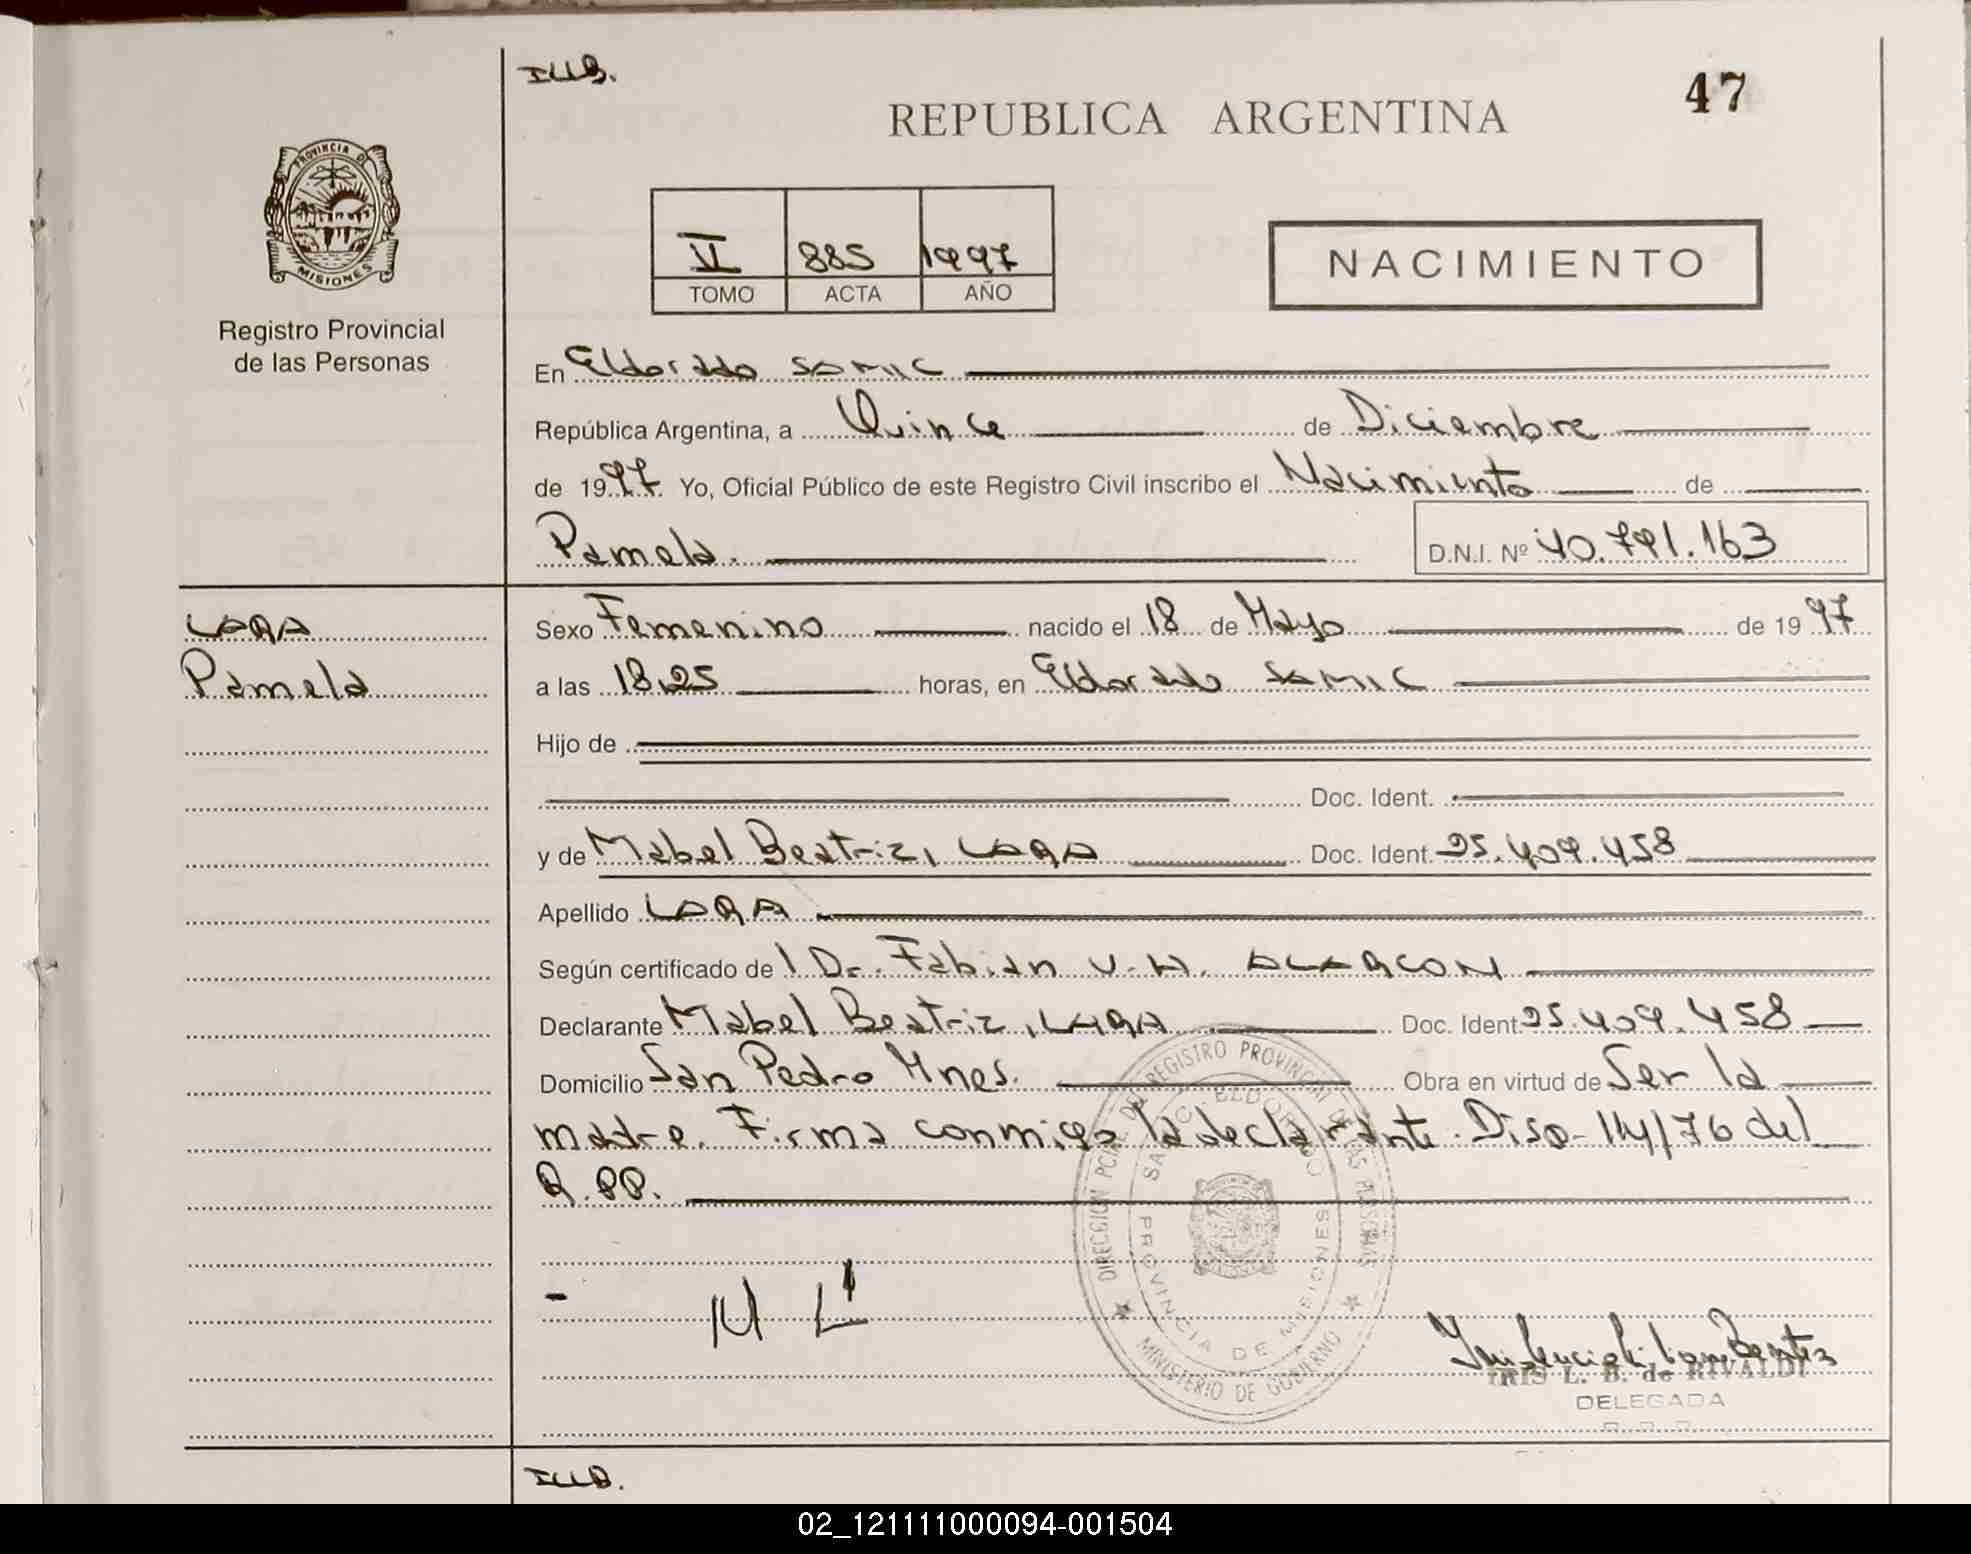 ILLB.
47
REPUBLICA ARGENTINA
PROVINCIA DE
MISIONES
Registro Provincial
de las Personas
VI 885 1997
TOMO ACTA AÑO
NACIMIENTO
En Eldorado SAMIC
República Argentina, a Quince de Diciembre
de 1997. Yo, Oficial Público de este Registro Civil inscribo el Nacimiento de
Pamela. D.N.I. Nº 40.791.163
LARA
Pamela
Sexo Femenino nacido el 18 de Mayo de 1997
a las 18,25 horas, en Eldorado SAMIC
Hijo de
Doc. Ident.
y de Mabel Beatriz, LARA Doc. Ident. 25.409.458
Apellido LARA
Según certificado de l Dr. Fabian V.H. ALARCON
Declarante Mabel Beatriz, LARA Doc. Ident 25.409.458
Domicilio San Pedro Mnes. Obra en virtud de Ser la
madre. Firma conmigo la declarante. Disp- 114/76 del
R.PP.
M L
DIRECCION PCIAL DEL REGISTRO PROVINCIAL DE LAS PERSONAS
SAMIC ELDORADO
PROVINCIA DE MISIONES
MINISTERIO DE GOBIERNO
IRIS L. B. de RIVALDI
DELEGADA
ILLB.
02_121111000094-001504